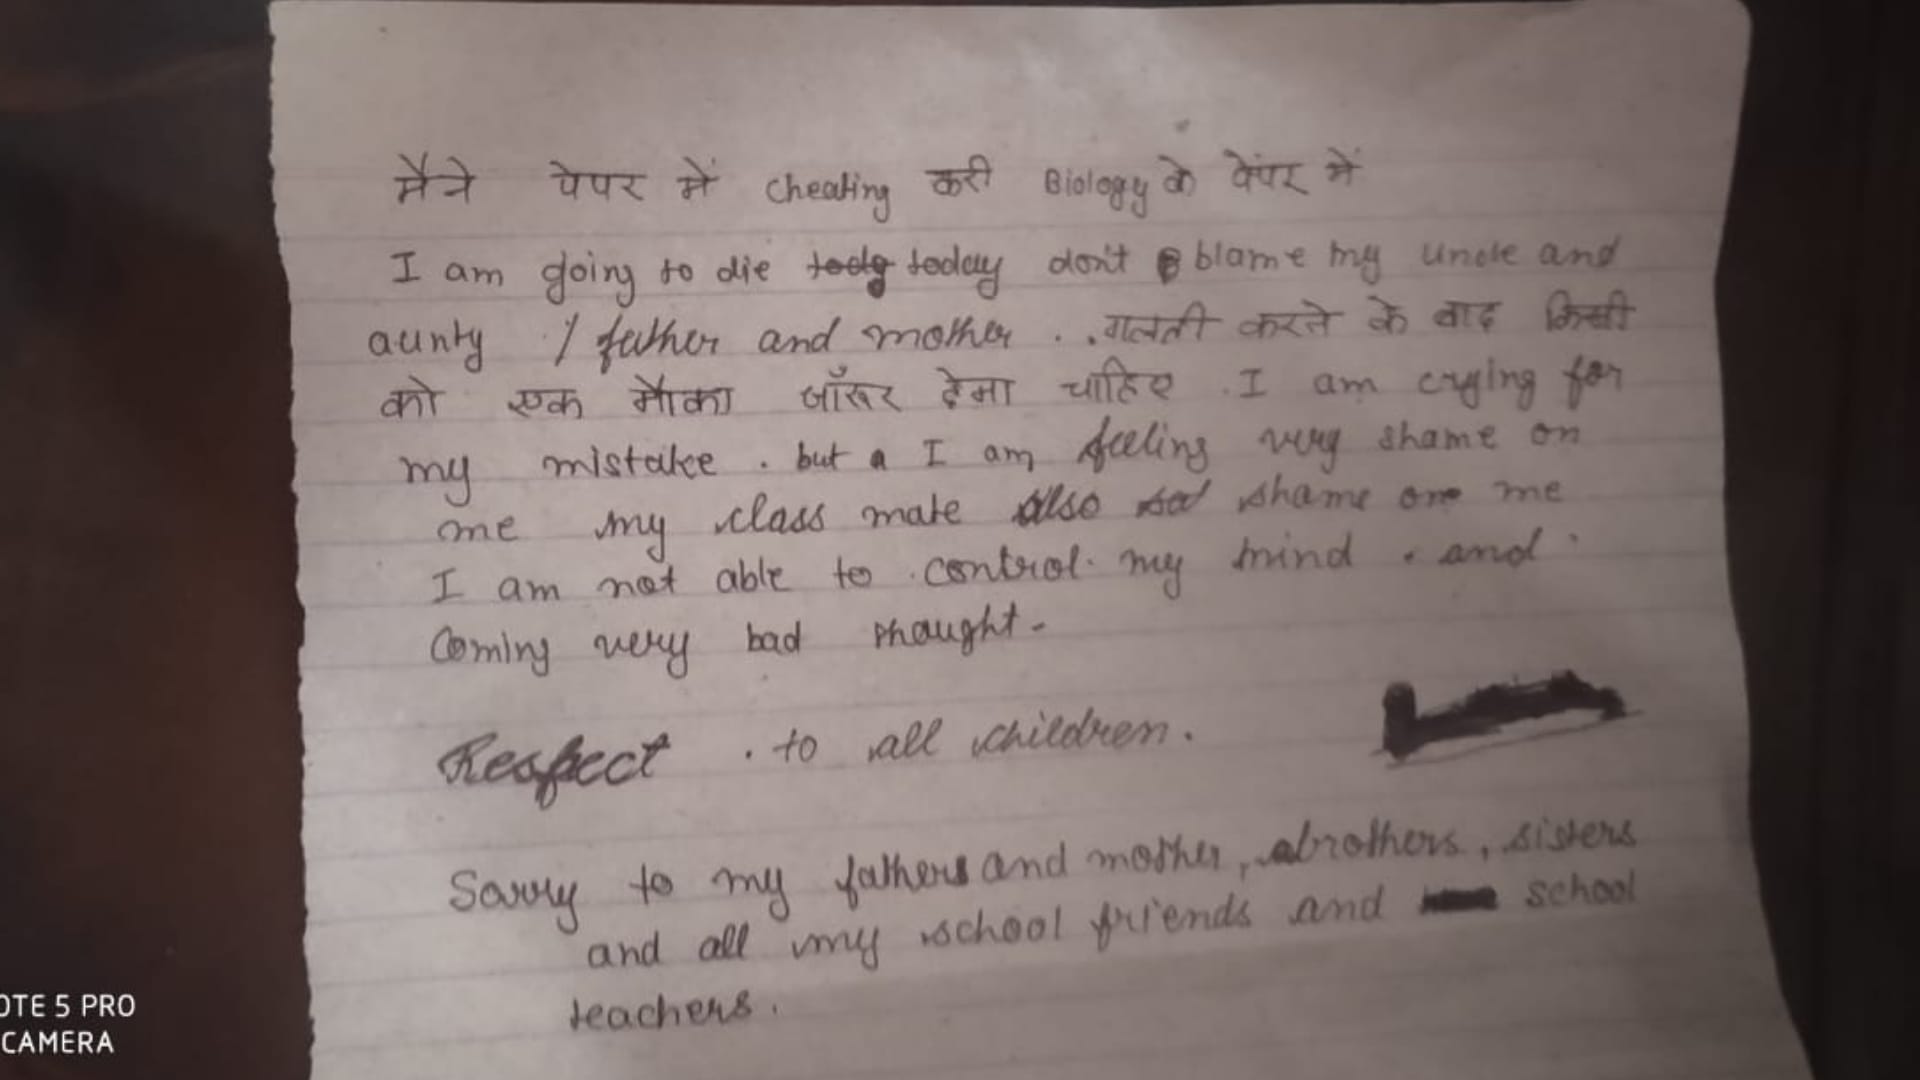 मैने पेपर में cheating करी Biology के पेपंर में
I am going to die today don't blame my uncle and
aunty / father and mother . . गलती करने के बाद किसी
को एक मौका जॉरूर देना चाहिए . I am crying for
my mistake . but a I am feeling very shame on
me my class mate also shame on me
I am not able to control my mind . and
Coming very bad thought -
Respect . to all children .
Sorry to my fathers and mother, brothers, sisters
and all my school friends and school
teachers .
OTE 5 PRO
CAMERA